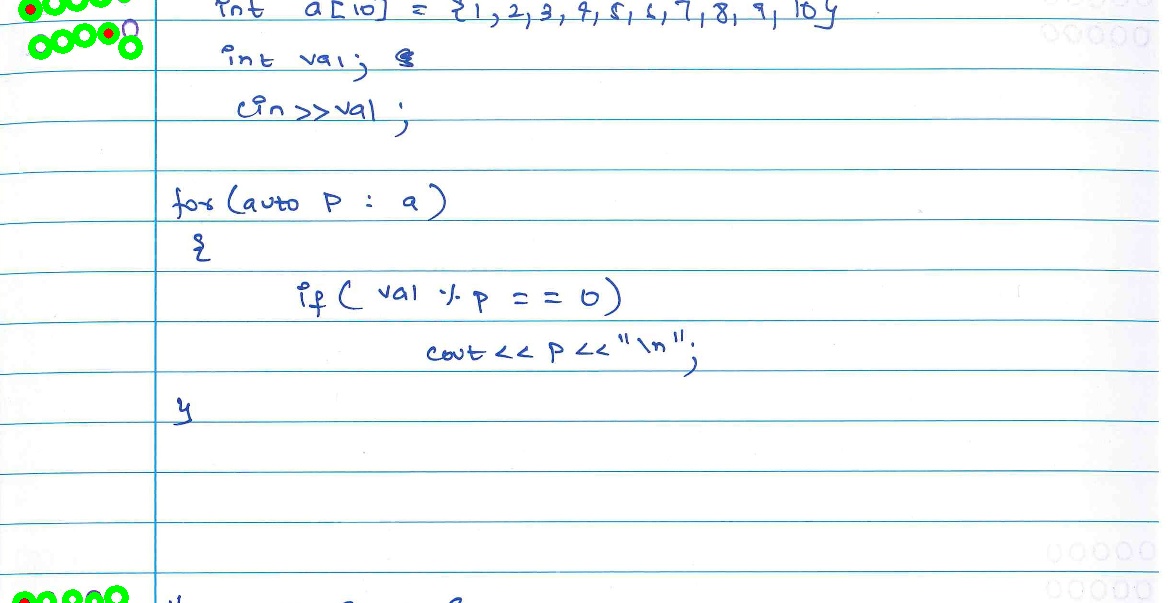 int a[10] = {1,2,3,4,5,6,7,8,9,10}
int val;
cin>>val;
for(auto p : a)
{
if( val % p == 0)
cout << p <<"\n";
}